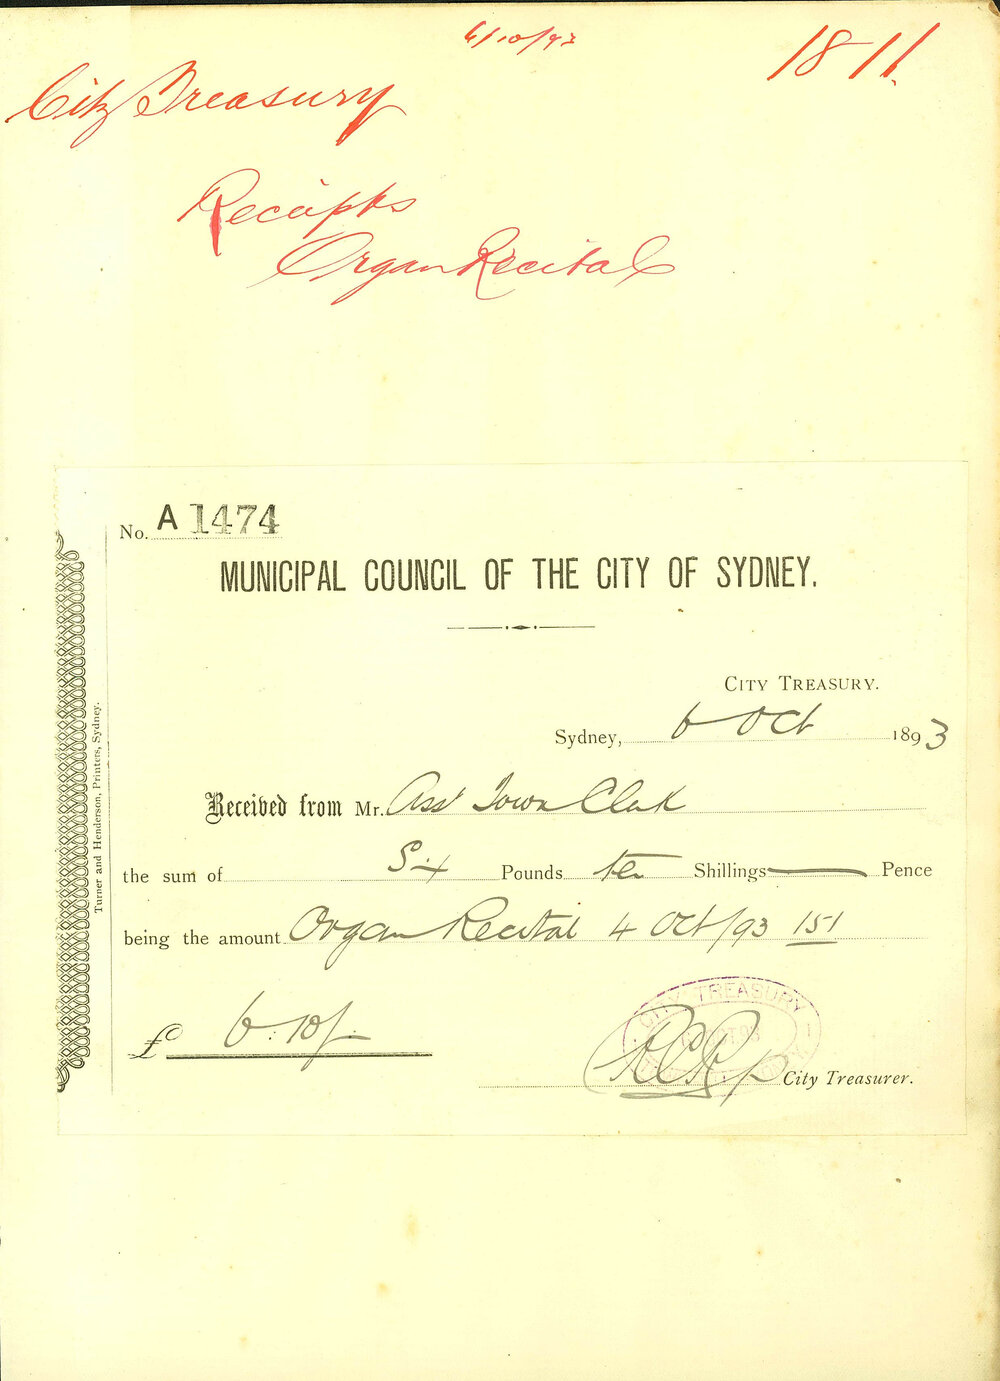 6/10/93
1811.
City Treasury
Receipts
Organ Recital
No. A 1474
MUNICIPAL COUNCIL OF THE CITY OF SYDNEY.
CITY TREASURY.
Sydney, 6 Oct 1893
Received from Mr. Asst Town Clerk
the sum of Six Pounds ten Shillings — Pence
being the amount Organ Recital 4 Oct/93 151
£ 6:10/-
CITY TREASURY
City Treasurer.
Turner and Henderson, Printers, Sydney.